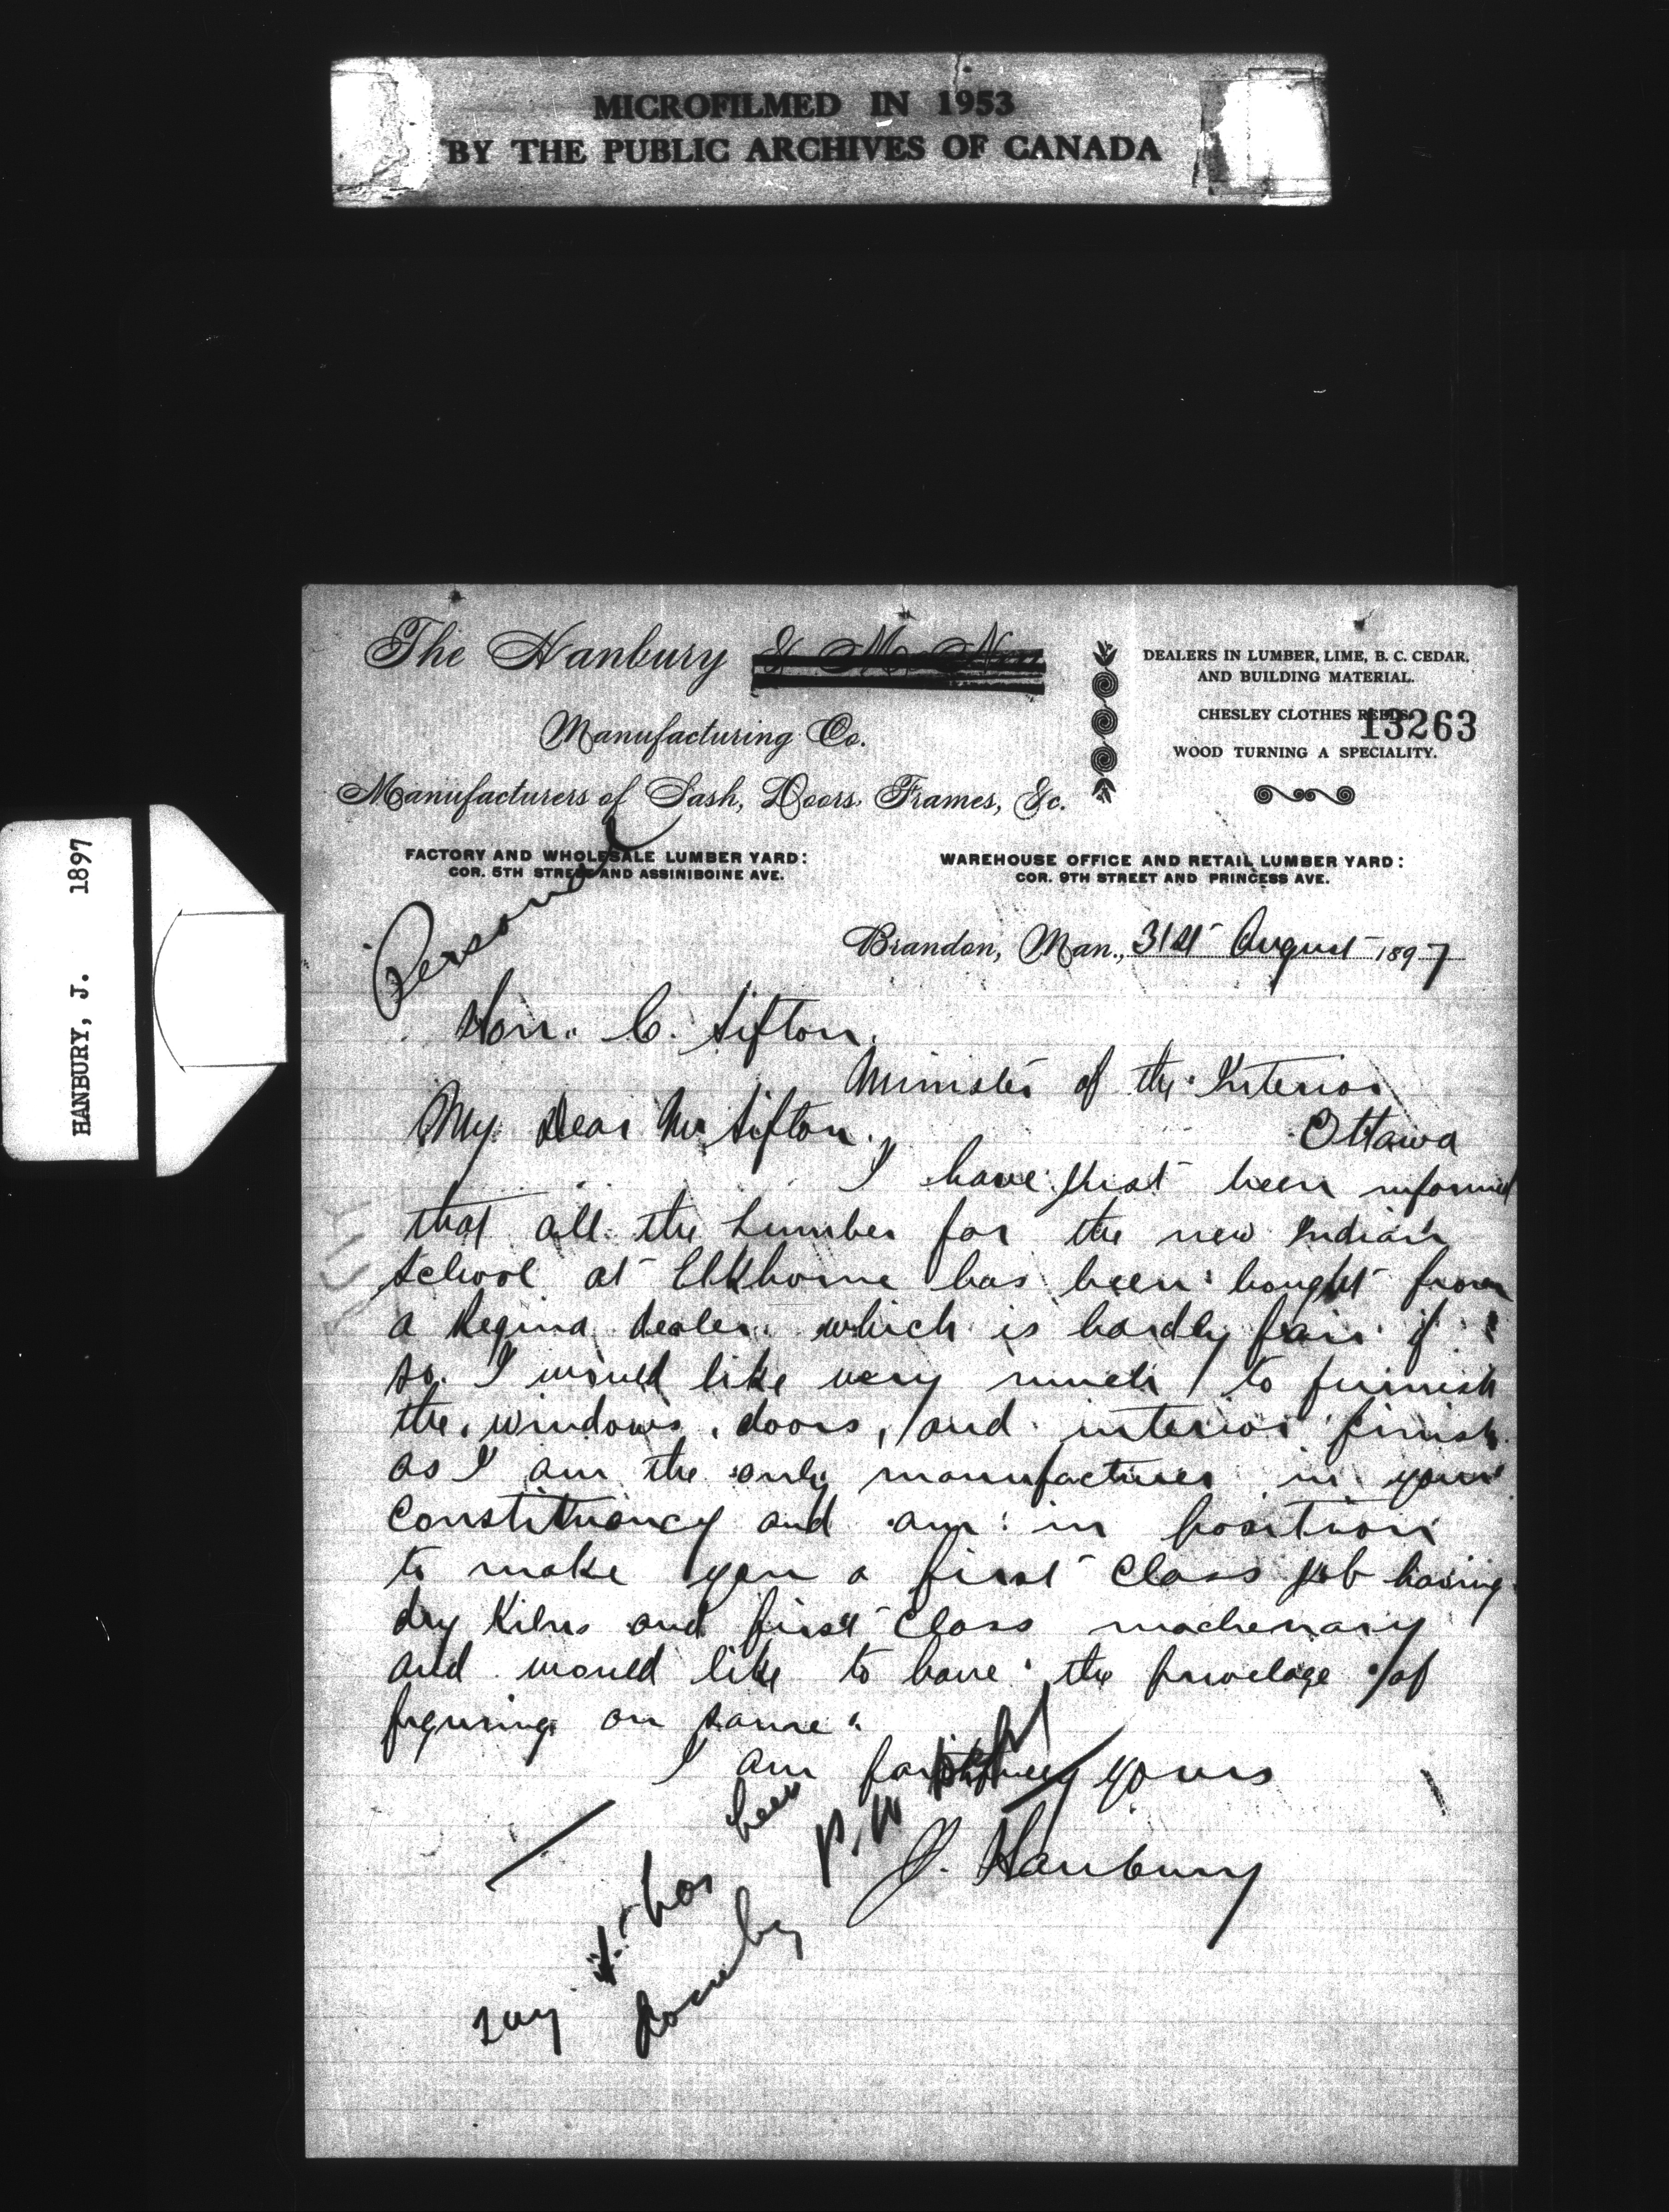 MICROFILMED IN 1953
BY THE PUBLIC ARCHIVES OF CANADA
HANBURY, J. 1897
The Hanbury
Manufacturing Co.
Manufacturers of Sash, Doors, Frames, &c.
DEALERS IN LUMBER, LIME, B. C. CEDAR,
AND BUILDING MATERIAL.
CHESLEY CLOTHES REELS.
13263
WOOD TURNING A SPECIALITY.
FACTORY AND WHOLESALE LUMBER YARD:
COR. 5TH STREET AND ASSINIBOINE AVE.
WAREHOUSE OFFICE AND RETAIL LUMBER YARD:
COR. 9TH STREET AND PRINCESS AVE.
Personal
Brandon, Man., 31st August 1897
Hon. C. Sifton.
Minister of the Interior
Ottawa
My Dear Mr Sifton.,
I have just been informed
that all the Lumber for the new Indian
School at Elkhorne has been bought from
a Regina dealer. which is hardly fair if
so. I would like very much to furnish
the windows, doors, and interior finish
as I am the only manufacturer in your
Constituency and am in position
to make you a first Class job having
dry Kilns and first Class machenary
and would like to have the privelage of
figuring on same.
I am faithfully yours
J. Hanbury
Say it has been
done by P. W.